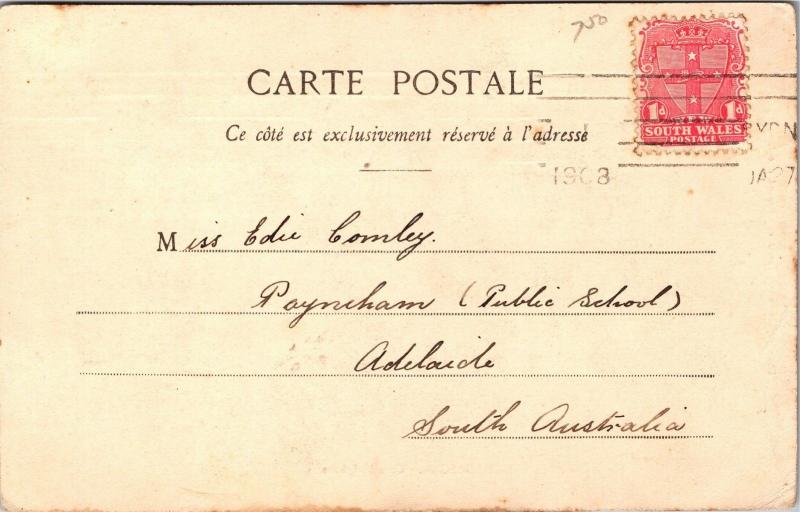 750
CARTE POSTALE
1d 1d
SOUTH WALES
POSTAGE
SYDN
Ce côté est exclusivement réservé à l'adresse
1908
JA 27
Miss Edie Comley.
Payneham (Public School)
Adelaide
South Australia